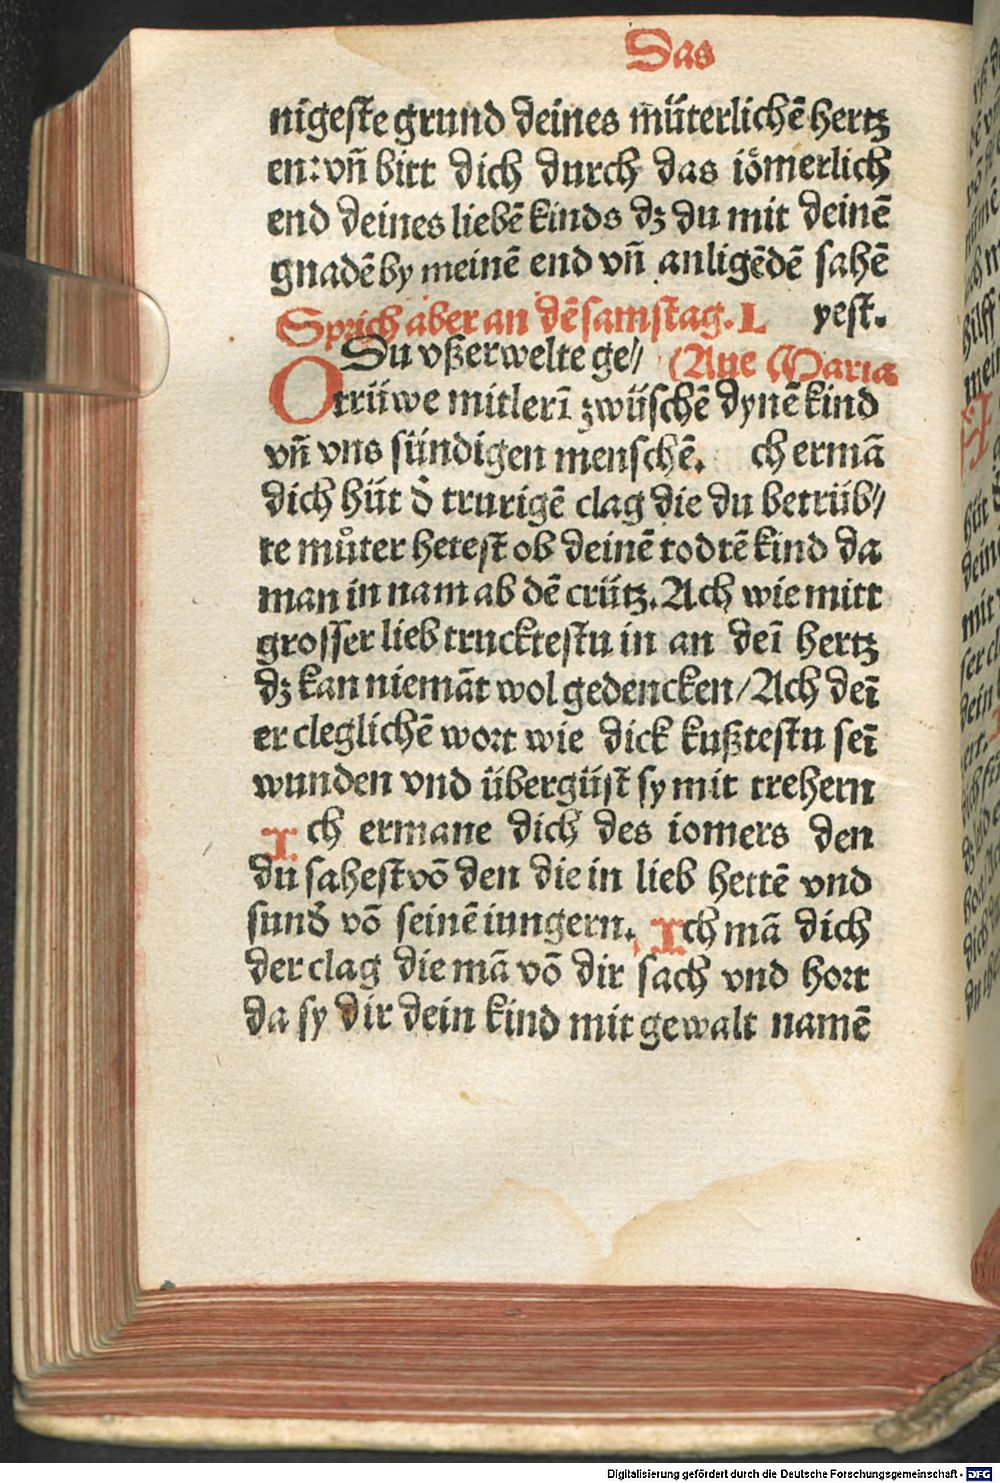 Das
nigeste grund deines müterlichē hertz
en: vn̄ bitt dich durch das iömerlich
end deines liebē kinds dʒ du mit deinē
gnadē by meinē end vn̄ anligēdē sahē
Sprich aber an dē samstag. L yest.
O Du vßerwelte ge⸗ (Aue Maria
trüwe mitlerī zwüschē dynē kind
vn̄ vns sündigen menschē. ch ermā
dich hüt d̄ trurigē clag die du betrüb⸗
te můter hetest ob deinē todtē kind da
man in nam ab dē crütz. Ach wie mitt
grosser lieb trucktestu in an deī hertz
dʒ kan niemāt wol gedencken/ Ach deī
er cleglichē wort wie dick kußtestu seī
wunden vnd übergüst sy mit trehern
Ich ermane dich des iomers den
du sahest vō den die in lieb hettē vnd
sund̄ vō seinē iungern. Ich mā dich
der clag die mā vō dir sach vnd hort
da sy dir dein kind mit gewalt namē
Digitalisierung gefördert durch die Deutsche Forschungsgemeinschaft - DFG